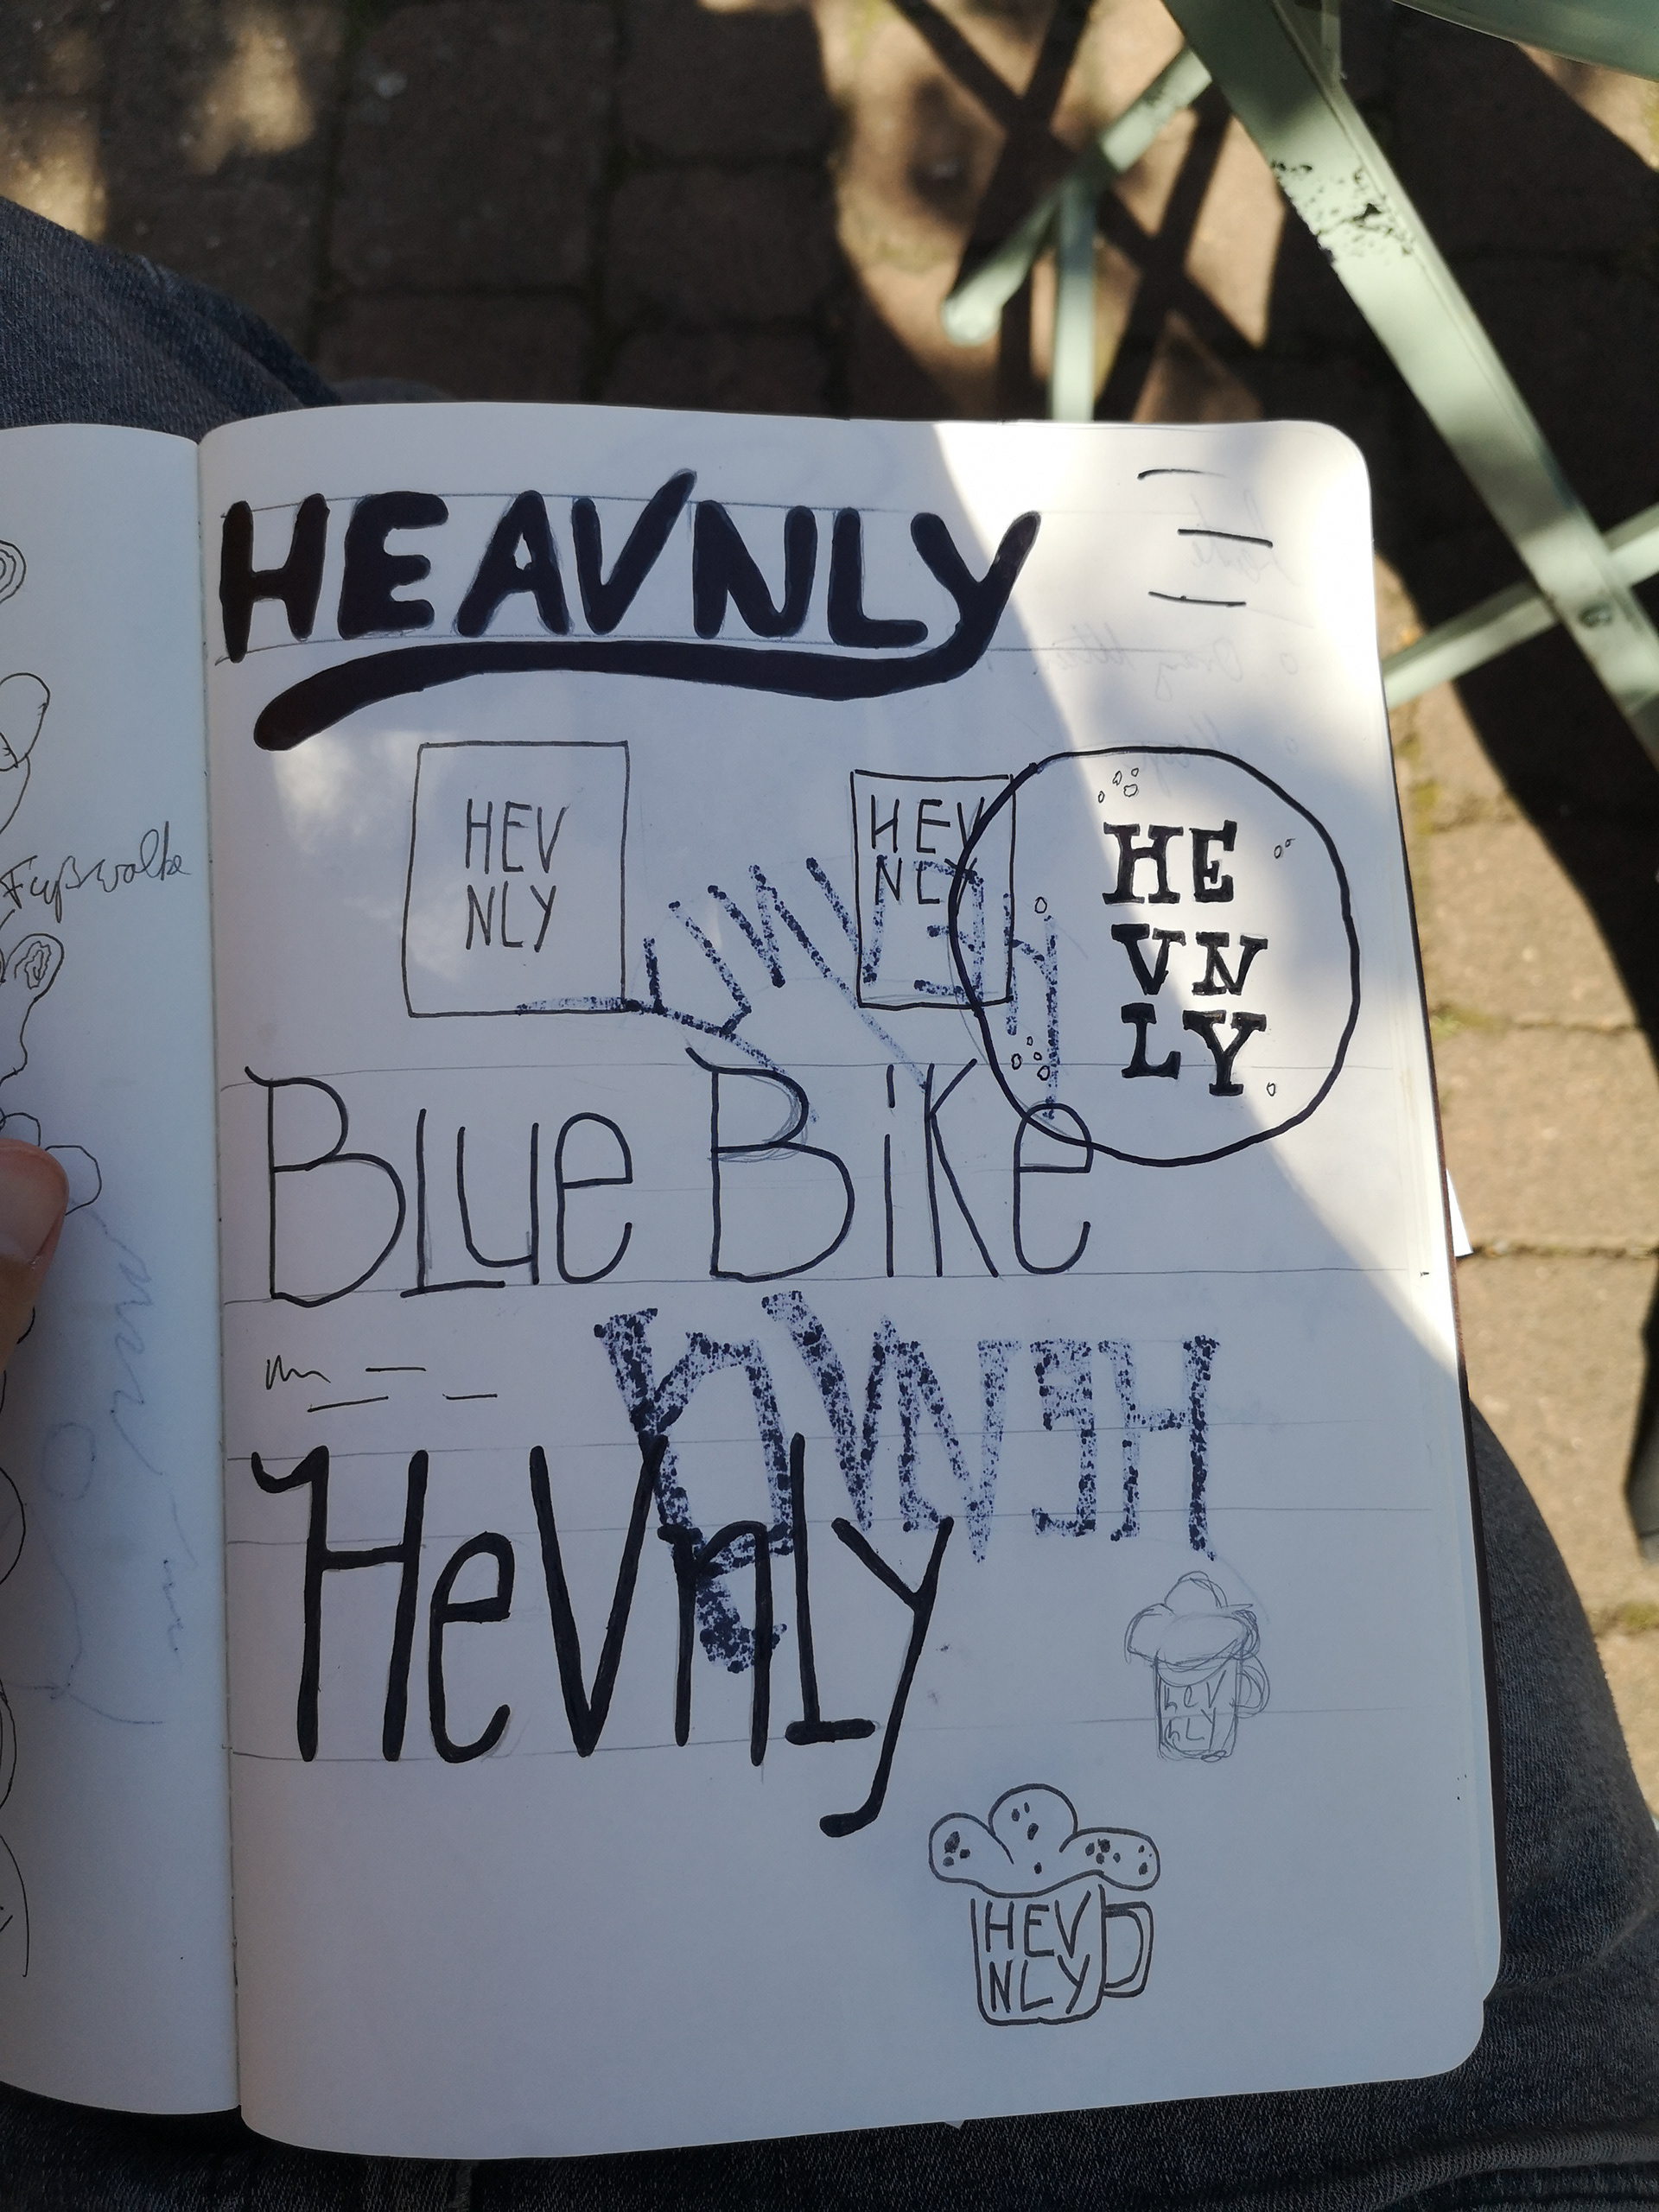 HEAVNLY
HEV
NLY
HEV
NLY
HE
VN
LY
Fußwolke
Blue Bike
HeVnLy
HEV
NLY
HEV
NLY